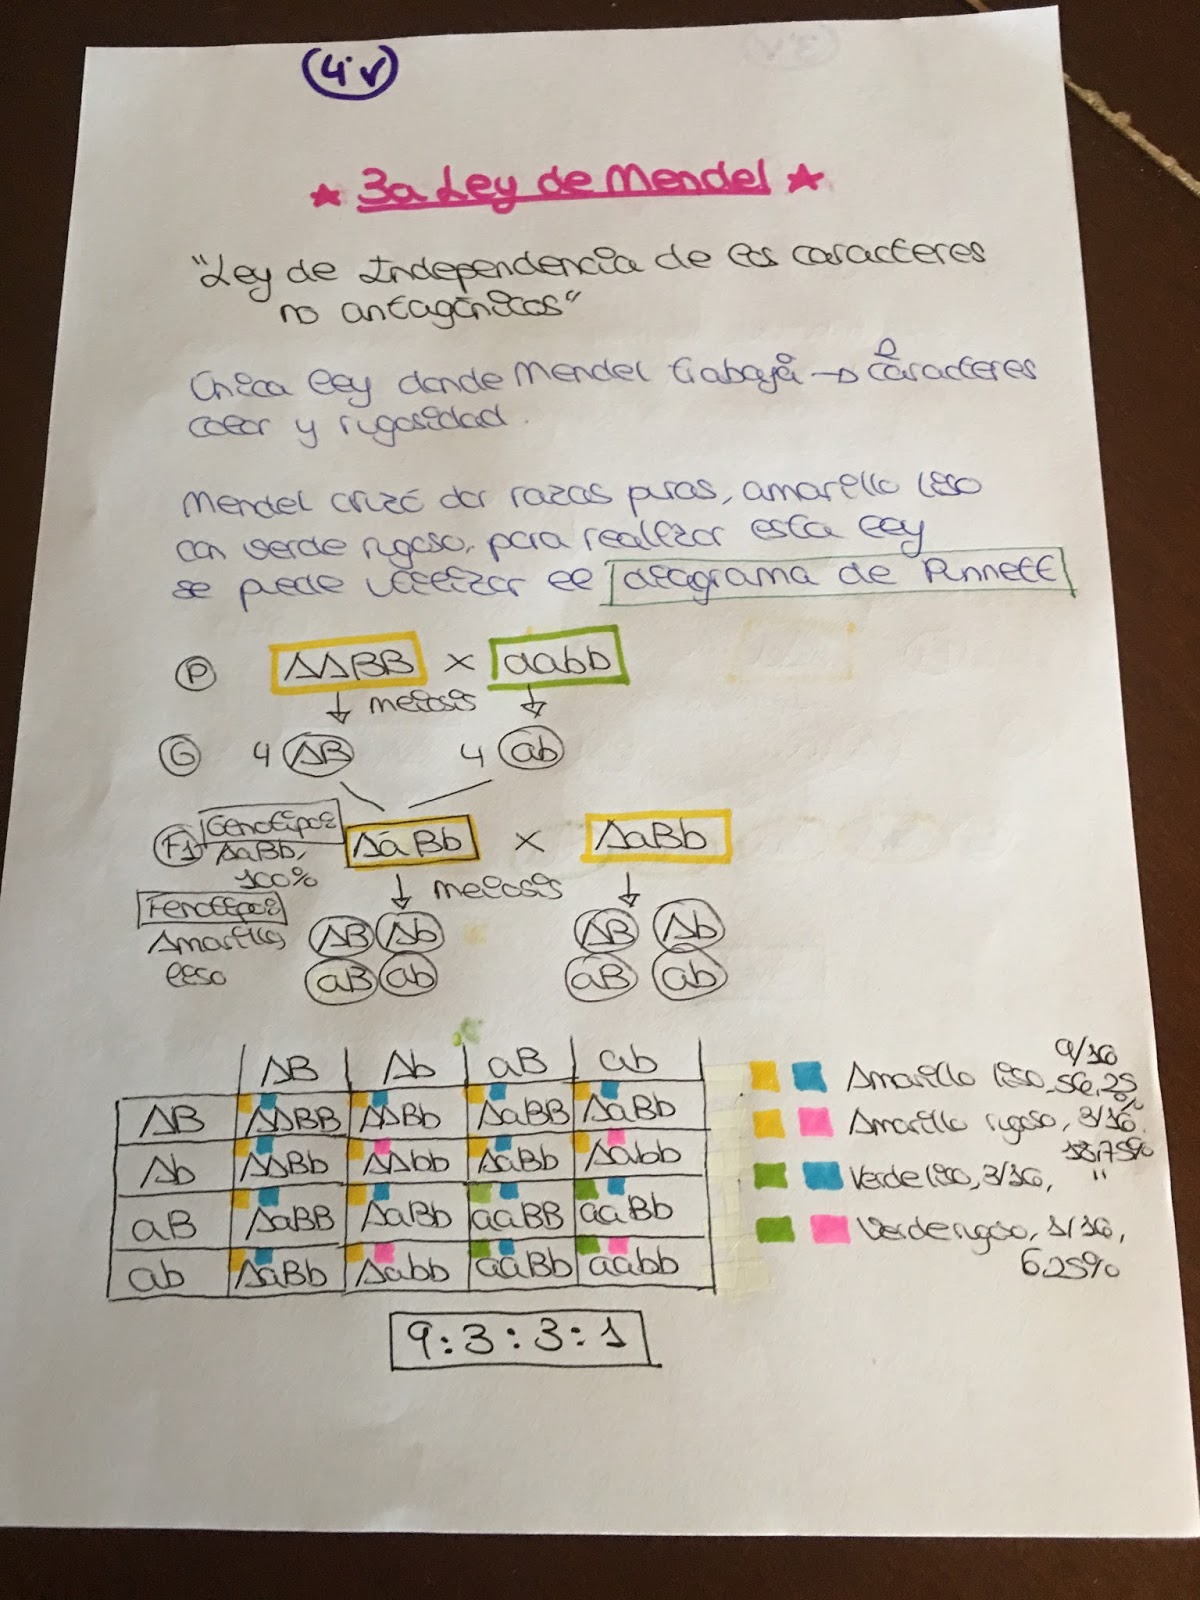 4.v
★ 3a Ley de Mendel ★
"Ley de Independencia de los caracteres
no antagónicos"
Única ley donde Mendel trabajó → 2 caracteres
color y rugosidad.
Mendel cruzó dos razas puras, amarillo liso
con verde rugoso, para realizar esta ley
se puede utilizar el diagrama de Punnett
P AABB x aabb
↓ meiosis ↓
G 4 AB 4 ab
F1 Genotipos AaBb x AaBb
AaBb,
100%
↓ meiosis ↓
Fenotipos
Amarillos
liso
AB Ab AB Ab
aB ab aB ab
AB Ab aB ab
AB AABB AABb AaBB AaBb
Ab AABb AAbb AaBb Aabb
aB AaBB AaBb aaBB aaBb
ab AaBb Aabb aaBb aabb
9/16
Amarillo liso, 56,25
%
Amarillo rugoso, 3/16.
18,75%
Verde liso, 3/16, "
Verde rugoso, 1/16,
6.25%
9:3:3:1